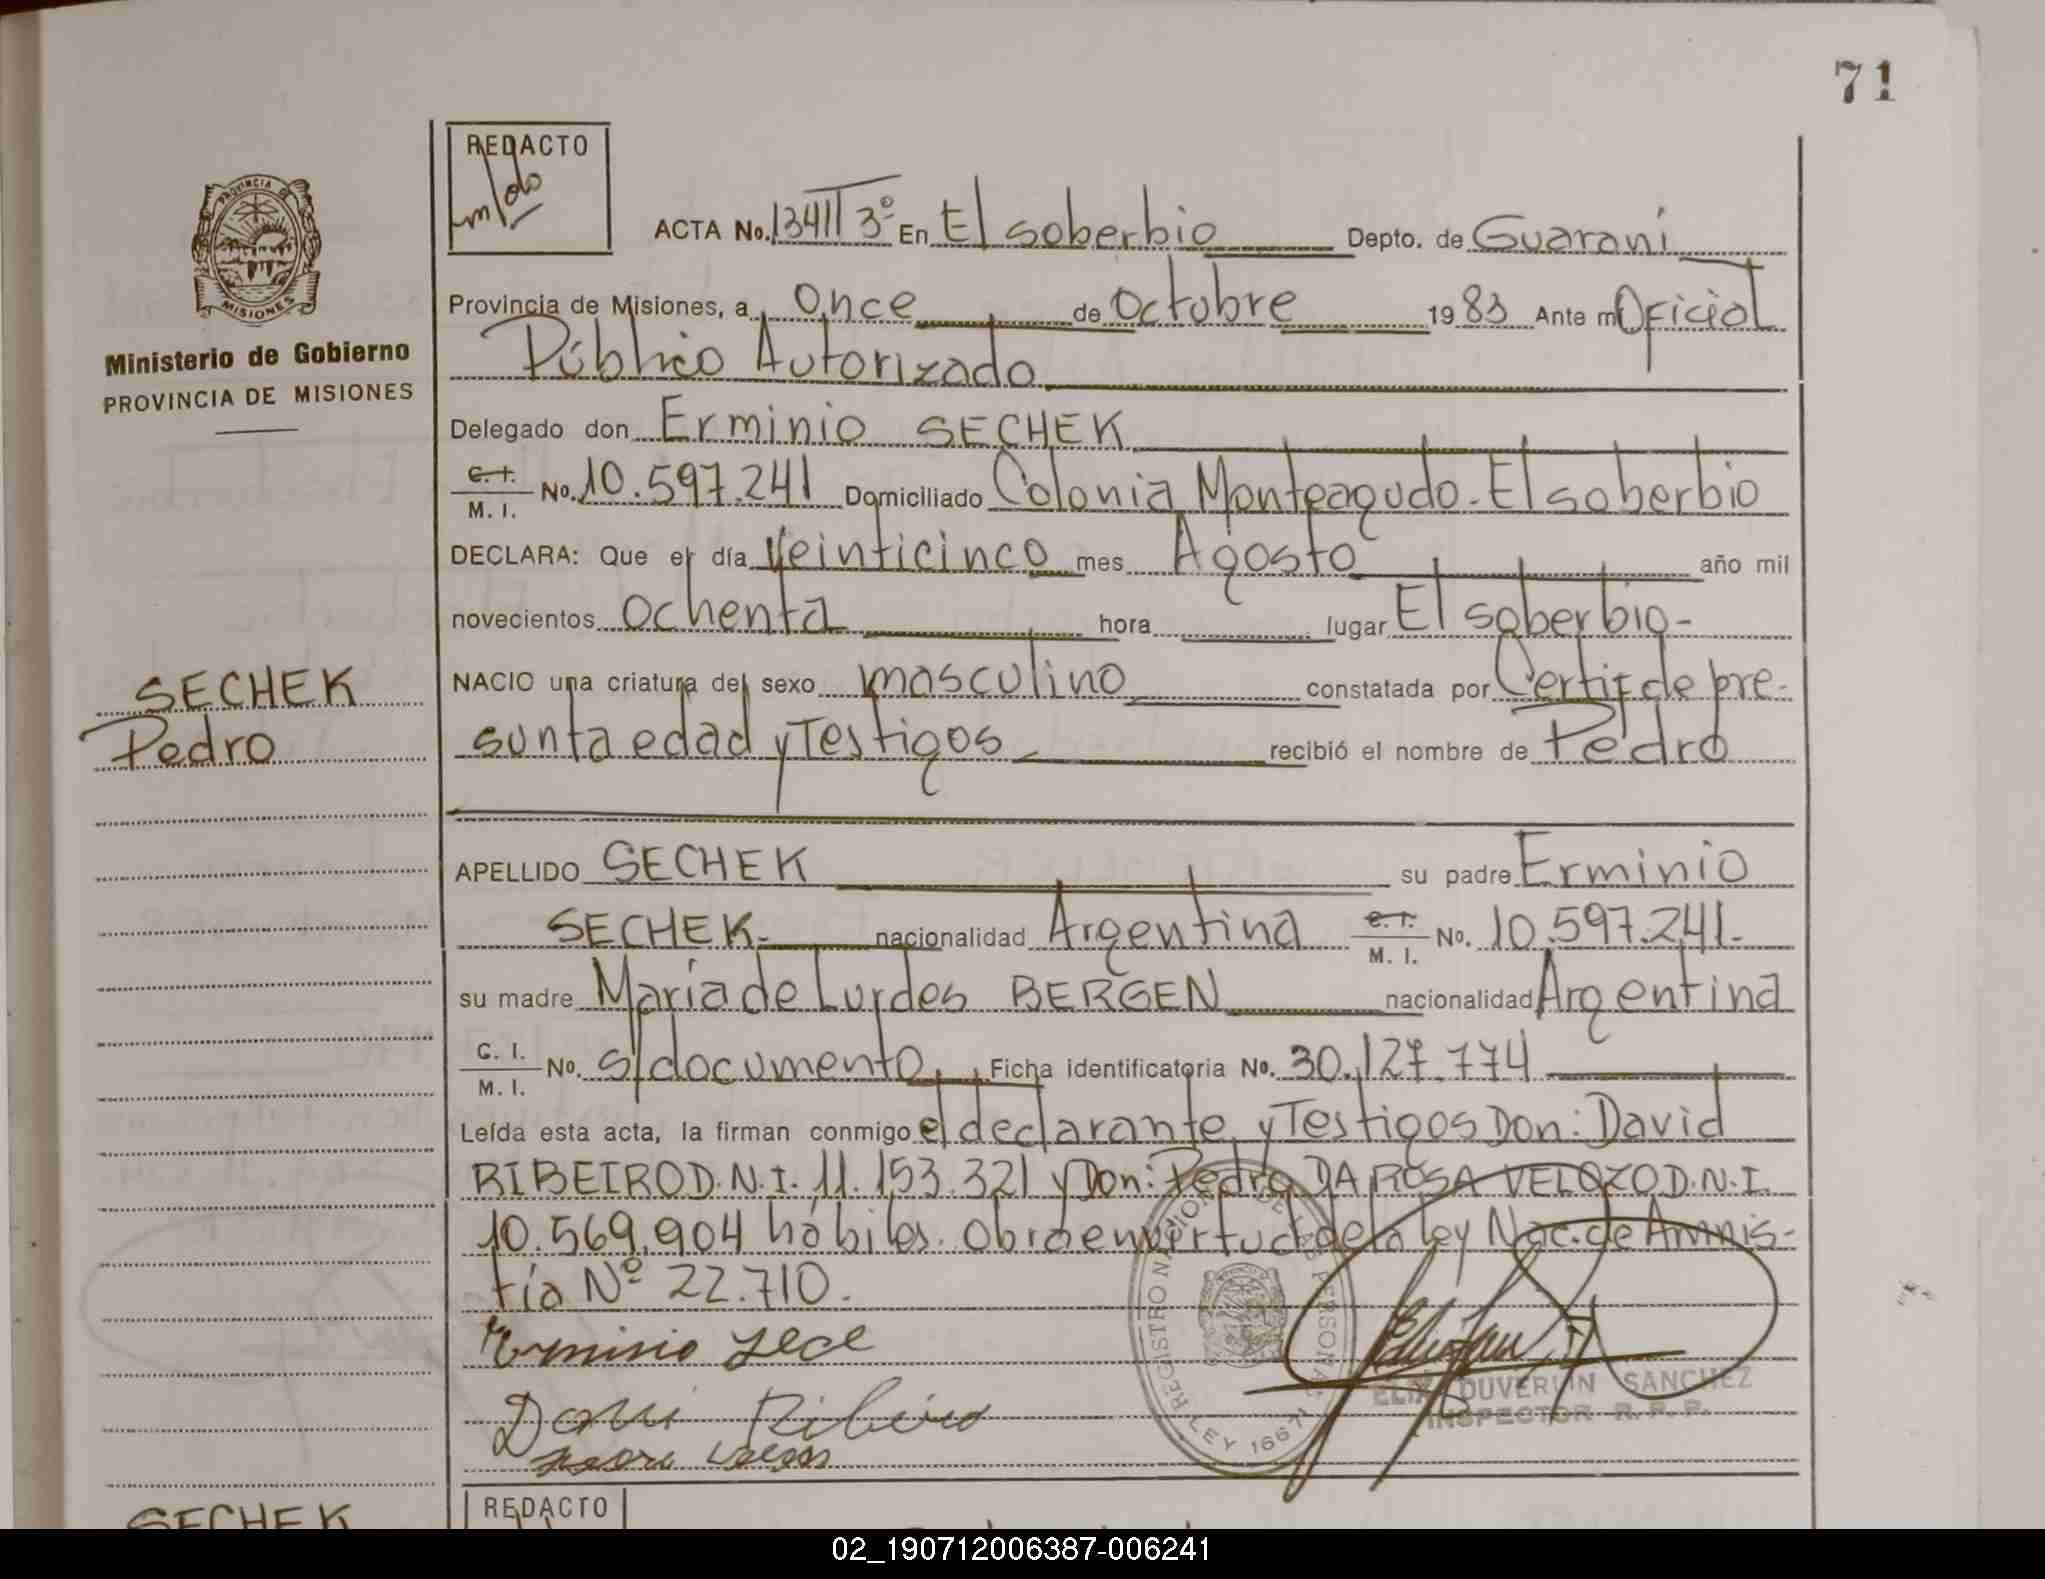 71
REDACTO
PROVINCIA DE
MISIONES
ACTA No. 1341 T 3º En El soberbio Depto. de Guaraní
Provincia de Misiones, a Once de Octubre 1983 Ante mi Oficial
Público Autorizado
Ministerio de Gobierno
PROVINCIA DE MISIONES
Delegado don Erminio SECHEK
C. I. / M. I. No. 10.597.241 Domiciliado Colonia Monteagudo-El soberbio
DECLARA: Que el día veinticinco mes Agosto año mil
novecientos ochenta hora lugar El soberbio-
NACIO una criatura del sexo masculino constatada por Certif de pre-
sunta edad y Testigos recibió el nombre de Pedro
SECHEK
Pedro
APELLIDO SECHEK su padre Erminio
SECHEK- nacionalidad Argentina C. I. / M. I. No. 10.597.241-
su madre María de Lurdes BERGEN nacionalidad Argentina
C. I. / M. I. No. s/documento Ficha identificatoria No. 30.127.774
Leída esta acta, la firman conmigo el declarante y Testigos Don: David
RIBEIRO D.N.I. 11.153.321 y Don: Pedro DA ROSA VELOZO D.N.I.
10.569.904 hábiles. Obra en vertud de la ley Nac. de Amnis-
tía Nº 22.710.
Erminio Sece
Davi Ribeiro
REGISTRO NACIONAL DE LAS PERSONAS
LEY 16671
DUVERLIN SANCHEZ
INSPECTOR R. P. P.
SECHEK
REDACTO
02_190712006387-006241